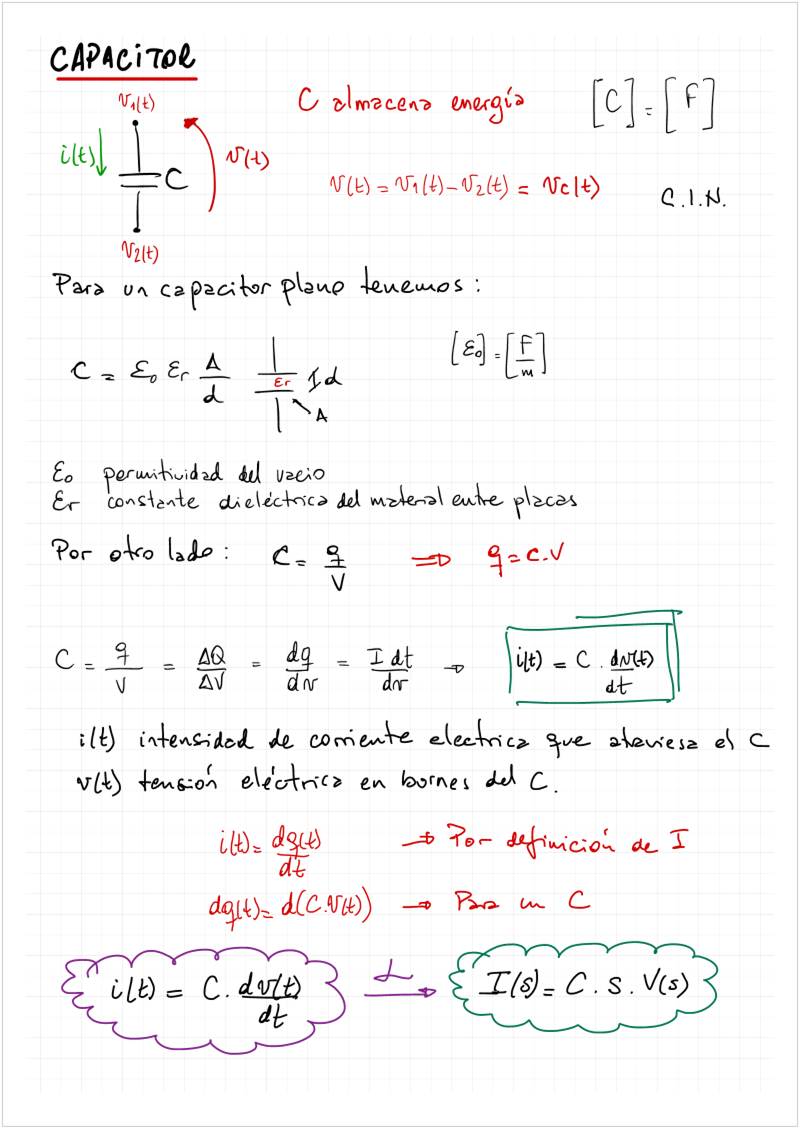 CAPACITOR
v₁(t)
C almacena energía
[C] = [F]
i(t)
C
v(t)
v(t) = v₁(t) - v₂(t) = vc(t)
C.I.N.
v₂(t)
Para un capacitor plano tenemos:
C = ε₀ εr A/d
εr
d
A
[ε₀] = [F/m]
ε₀ permitividad del vacio
εr constante dieléctrica del material entre placas
Por otro lado: C = q/V ⇒ q = C.V
C = q/V = ΔQ/ΔV = dq/dv = I dt/dv → i(t) = C . dv(t)/dt
i(t) intensidad de corriente electrica que atraviesa el C
v(t) tensión eléctrica en bornes del C.
i(t) = dq(t)/dt → Por definición de I
dq(t) = d(C.v(t)) → Para un C
i(t) = C . dv(t)/dt
ℒ
I(s) = C . s . V(s)